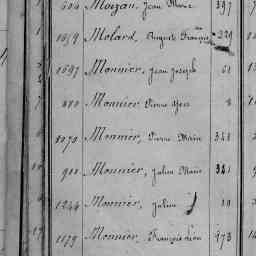 604 Moizan, Jean Marie 397
1659 Molard, Auguste François 229
1697 Monnier, Jean Joseph 61
810 Monnier Pierre Yves 8
1070 Monnier, Pierre Marie 348
900 Monnier, Julien Marie 341
1244 Monnier, Julien 10
1179 Monnier, François Léon 973